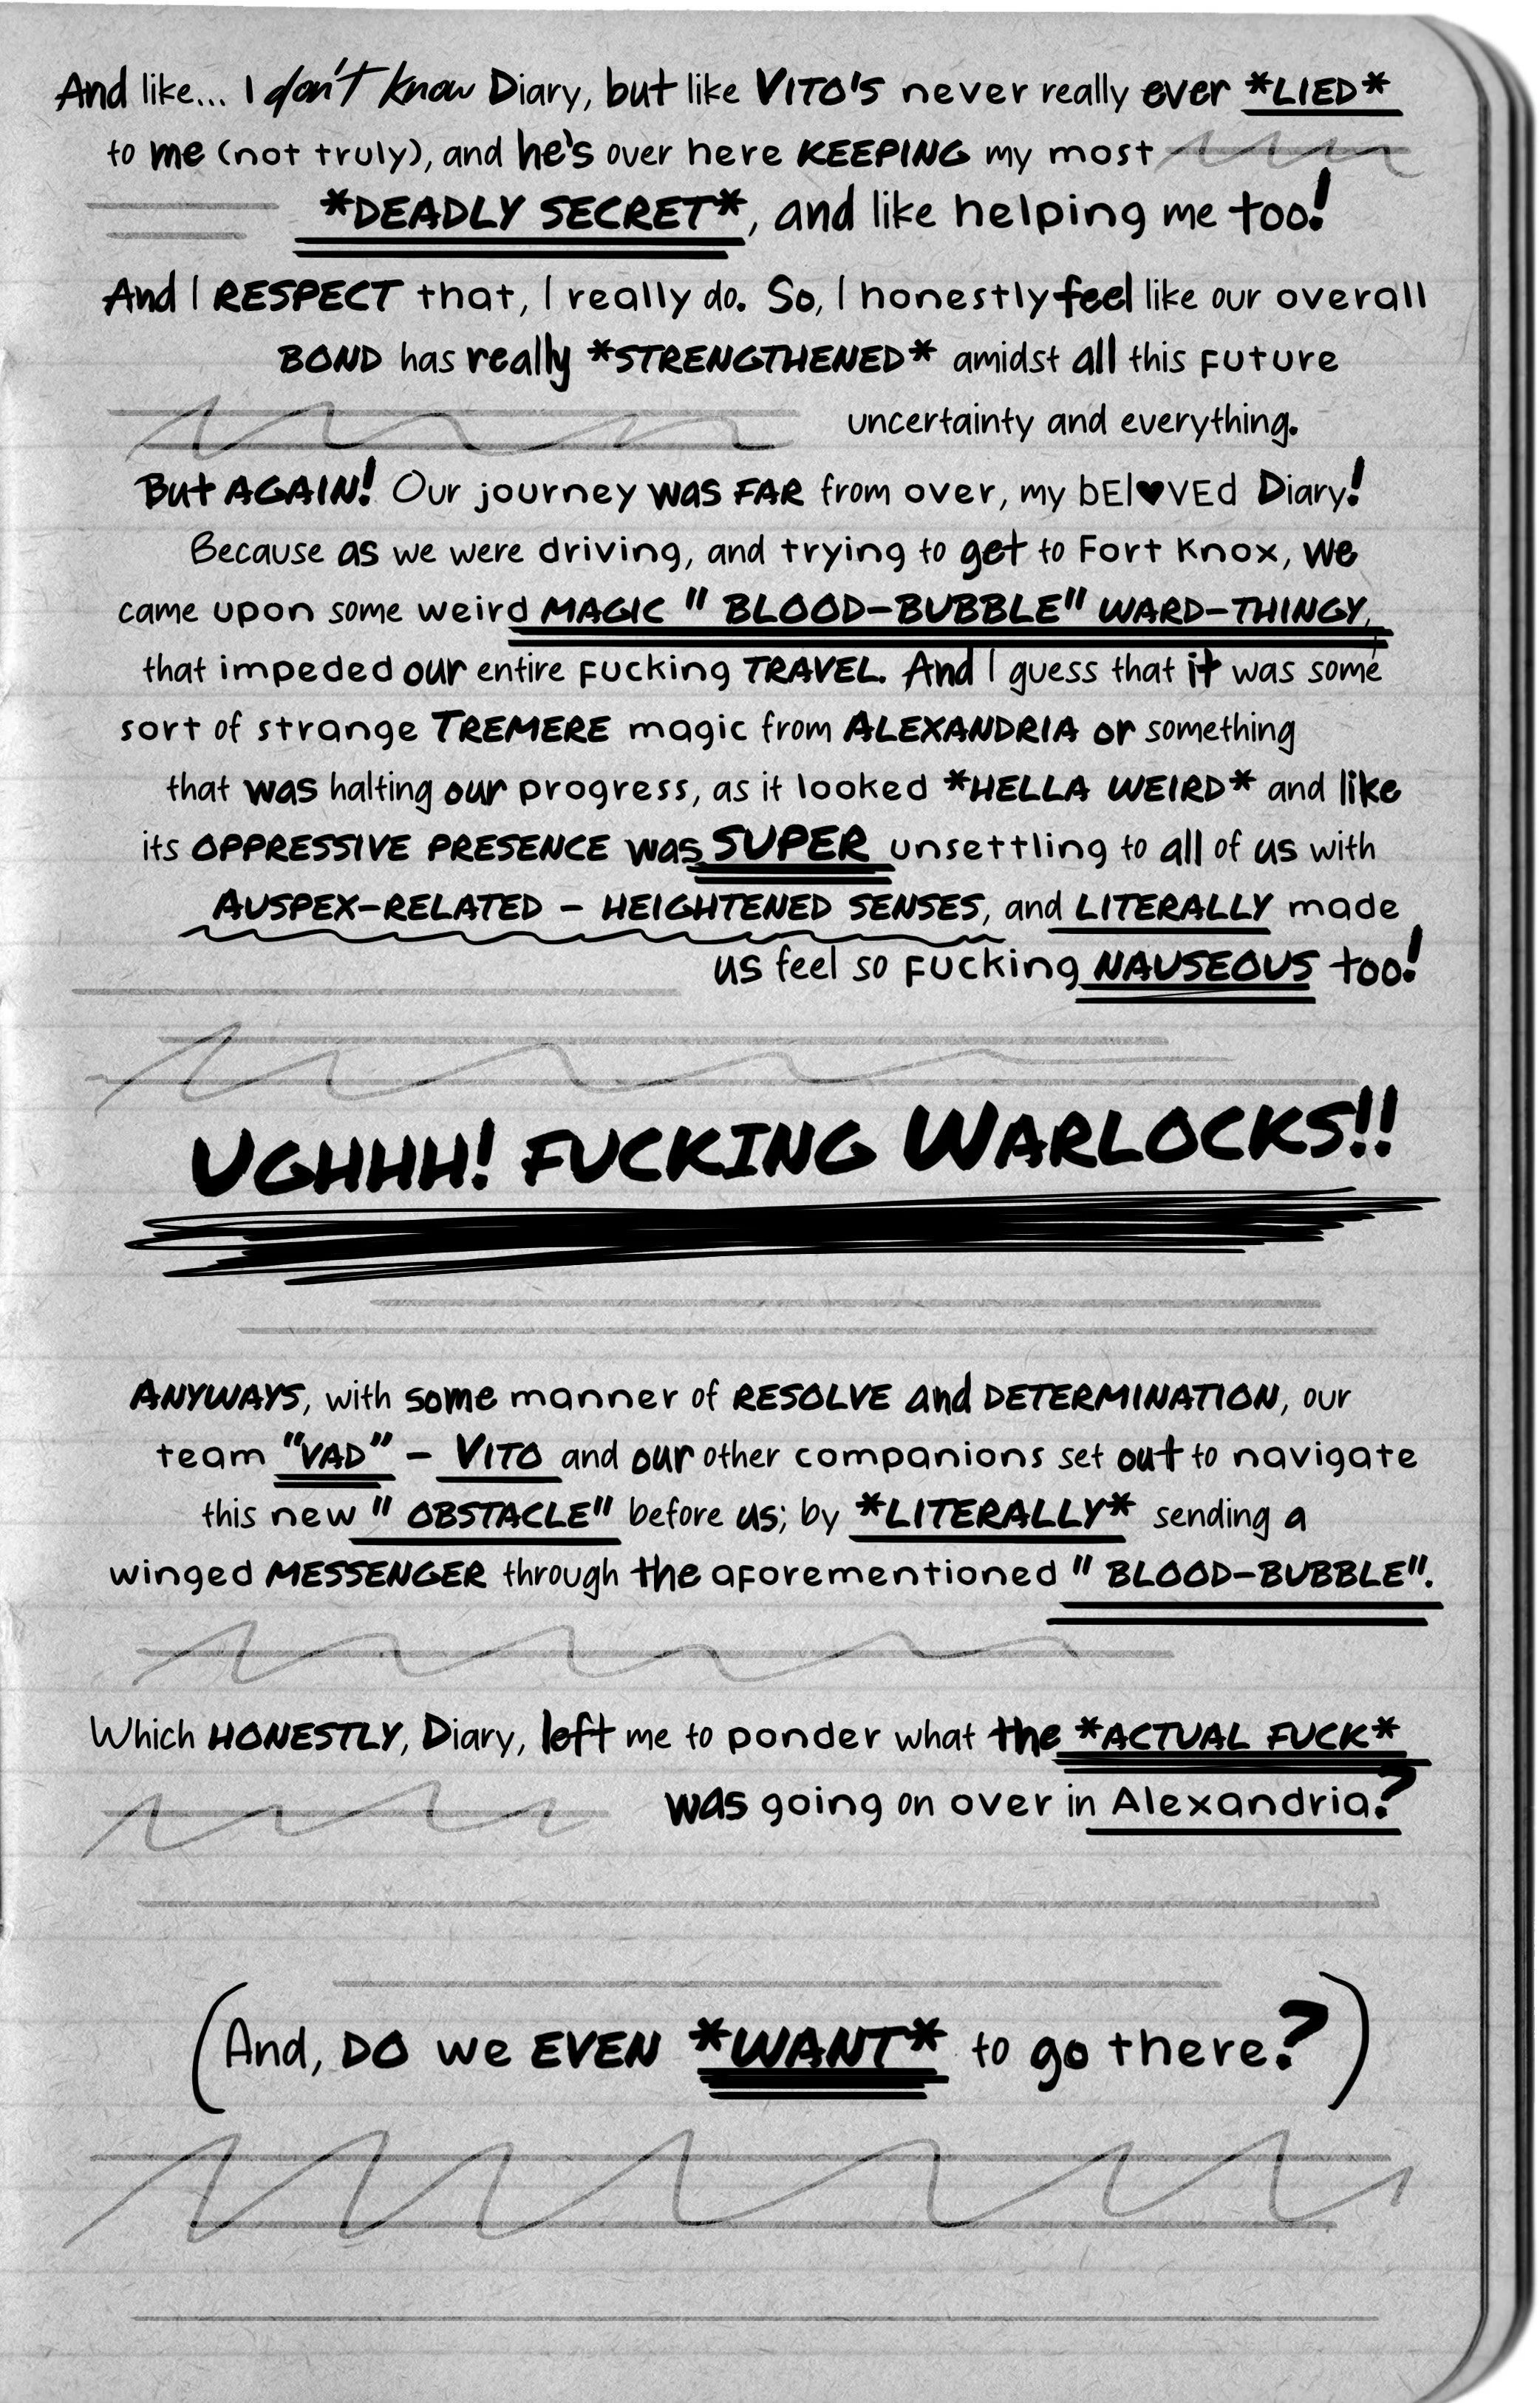 And like... I don't know Diary, but like VITO'S never really ever *LIED*
to me (not truly), and he's over here KEEPING my most
*DEADLY SECRET*, and like helping me too!
And I RESPECT that, I really do. So, I honestly feel like our overall
BOND has really *STRENGTHENED* amidst all this future
uncertainty and everything.
But AGAIN! Our journey was FAR from over, my bEl♥VEd Diary!
Because as we were driving, and trying to get to Fort Knox, we
came upon some weird MAGIC "BLOOD-BUBBLE" WARD-THINGY,
that impeded our entire fucking TRAVEL. And I guess that it was some
sort of strange TREMERE magic from ALEXANDRIA or something
that was halting our progress, as it looked *HELLA WEIRD* and like
its OPPRESSIVE PRESENCE was SUPER unsettling to all of us with
AUSPEX-RELATED - HEIGHTENED SENSES, and LITERALLY made
us feel so fucking NAUSEOUS too!
UGHHH! FUCKING WARLOCKS!!
ANYWAYS, with some manner of RESOLVE and DETERMINATION, our
team "VAD" - VITO and our other companions set out to navigate
this new "OBSTACLE" before us; by *LITERALLY* sending a
winged MESSENGER through the aforementioned "BLOOD-BUBBLE".
Which HONESTLY, Diary, left me to ponder what the *ACTUAL FUCK*
was going on over in Alexandria?
(And, DO we EVEN *WANT* to go there?)